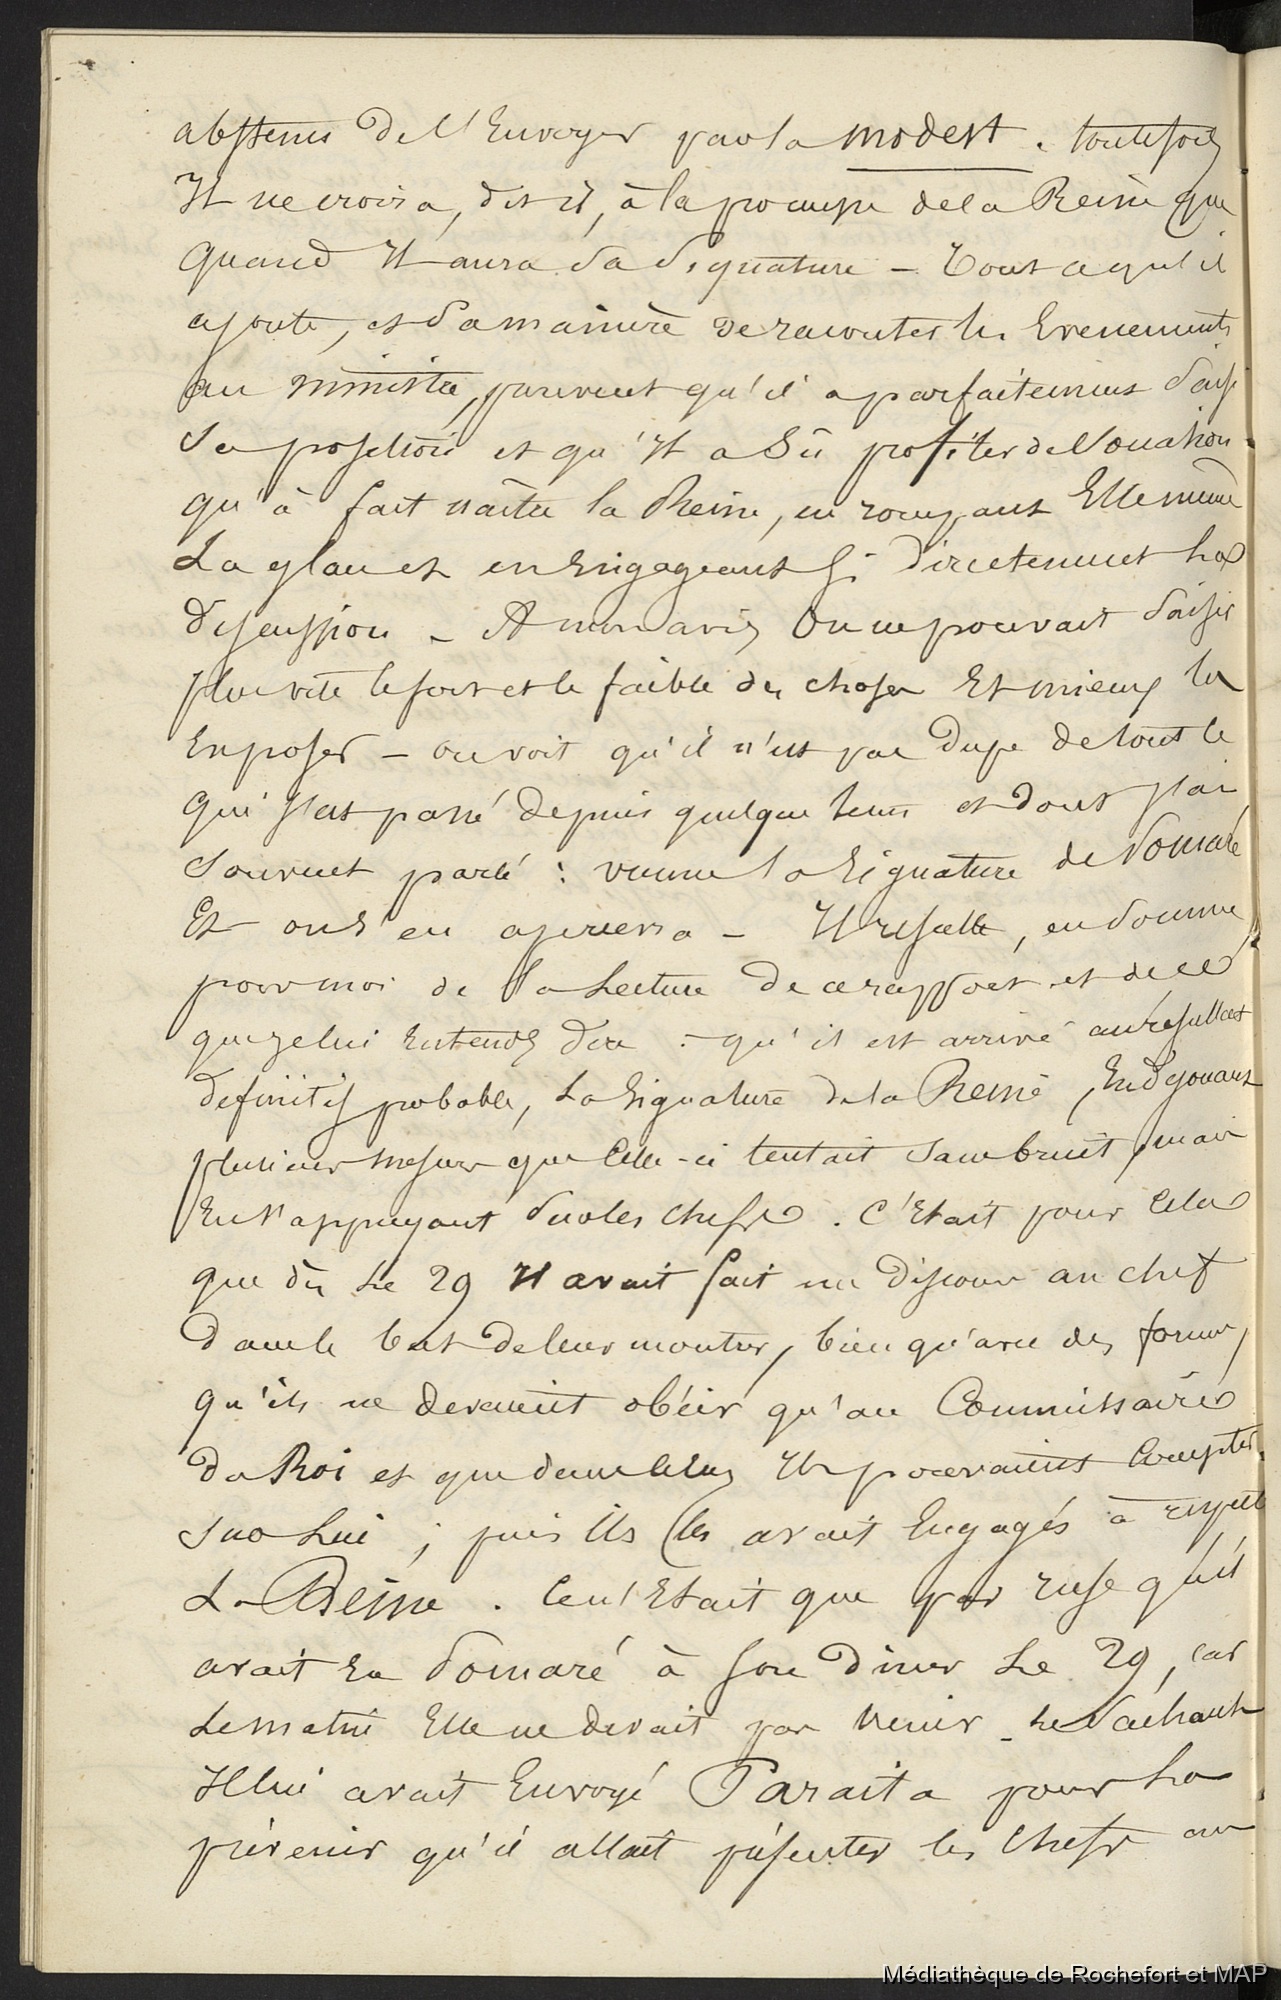 abstenu de l'Envoyer par la modeste. toutefois
Il ne croira, dit il, à la promesse de la Reine que
quand Il aura sa signature – Tout ce qu'il
ajoute, et sa manière de raconter les Evenements
au ministre, prouvent qu'il a parfaitement saisi
sa position et qu'Il a sû profiter de l'occasion
qu'à fait naître la Reine, en rompant Elle même
La glace et en Engageant si directement La
discussion – A mon avis on ne pouvait saisir
plus vite le fort et le faible des choses Et mieux les
Exposer – on voit qu'il n'est pas dupe de tout ce
qui s'est passé depuis quelque tems et dont j'ai
souvent parlé : vienne la signature de Pomaré
Et on s'en apercevra – Il résulte, en somme,
pour moi de la Lecture de ce rapport et de ce
que je lui Entends dire : qu'il est arrivé au résultat
definitif probable, La Signature de la Reine, En déjouant
plusieurs mesures que Celle-ci tentait sans bruit, mais
En s'appuyant sur les chefs. C'Etait pour Cela
que dès Le 29 Il avait fait un discours au chefs
dans le but de leur montrer, bien qu'avec des formes,
qu'ils ne devaient obéir qu'au Commissaire
du Roi et que Ils pouvaient Compter
sur Lui ; puis Ils les avait Engagés à respecter
La Reine. Ce n'Etait que par ruse qu'il
avait Eu Pomaré à son Diner Le 29, car
Le matin Elle ne devait pas Venir – Le sachant
Il lui avait Envoyé Paraita pour La
prévenir qu'il allait présenter les Chefs au
Médiathèque de Rochefort et MAP